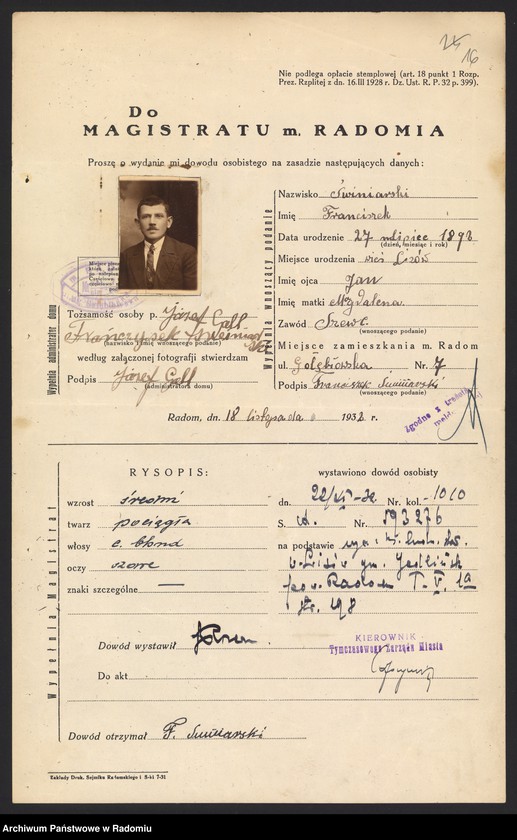 16
Nie podlega opłacie stemplowej (art. 18 punkt 1 Rozp.
Prez. Rzplitej z dn. 16.III 1928 r. Dz. Ust. R. P. 32 p. 399).
Do
MAGISTRATU m. RADOMIA
Proszę o wydanie mi dowodu osobistego na zasadzie następujących danych:
Wypełnia wnoszący podanie
Nazwisko Świniarski
Imię Franciszek
Data urodzenie 27 mlipiec 1898
(dzień, miesiąc i rok)
Miejsce urodzenia wieś Lisów
Imię ojca Jan
Imię matki Magdalena
Zawód Szewc
wnoszącego podanie)
Miejsce zamieszkania m. Radom
ul. Gołębiowska Nr. 7
Podpis Franciszek Swiniarski
(wnoszącego podanie)
Wypełnia administrator domu
Tożsamość osoby p. Józef Gall
Franczyszek
(nazwisko i imię wnoszącego podanie)
według załączonej fotografji stwierdzam
Podpis Józef Gall
(administratora domu)
Radom, dn. 18 listopada 1932 r.
Zgodne z
meld.
Wypełnia Magistrat
RYSOPIS:
wzrost średni
twarz pociągła
włosy c. blond
oczy szare
znaki szczególne —
wystawiono dowód osobisty
dn. 22/XI-32 Nr. kol. 1010
S. Nr. 593276
na podstawie
gm. Jedlińsk
pow. Radom T. V. 1a
198
Dowód wystawił
KIEROWNIK
Tymczasowego Zarządu Miasta
Do akt
Dowód otrzymał F. Swiniarski
Zakłady Druk. Sejmiku Radomskiego i S-ki 7-31
Archiwum Państwowe w Radomiu